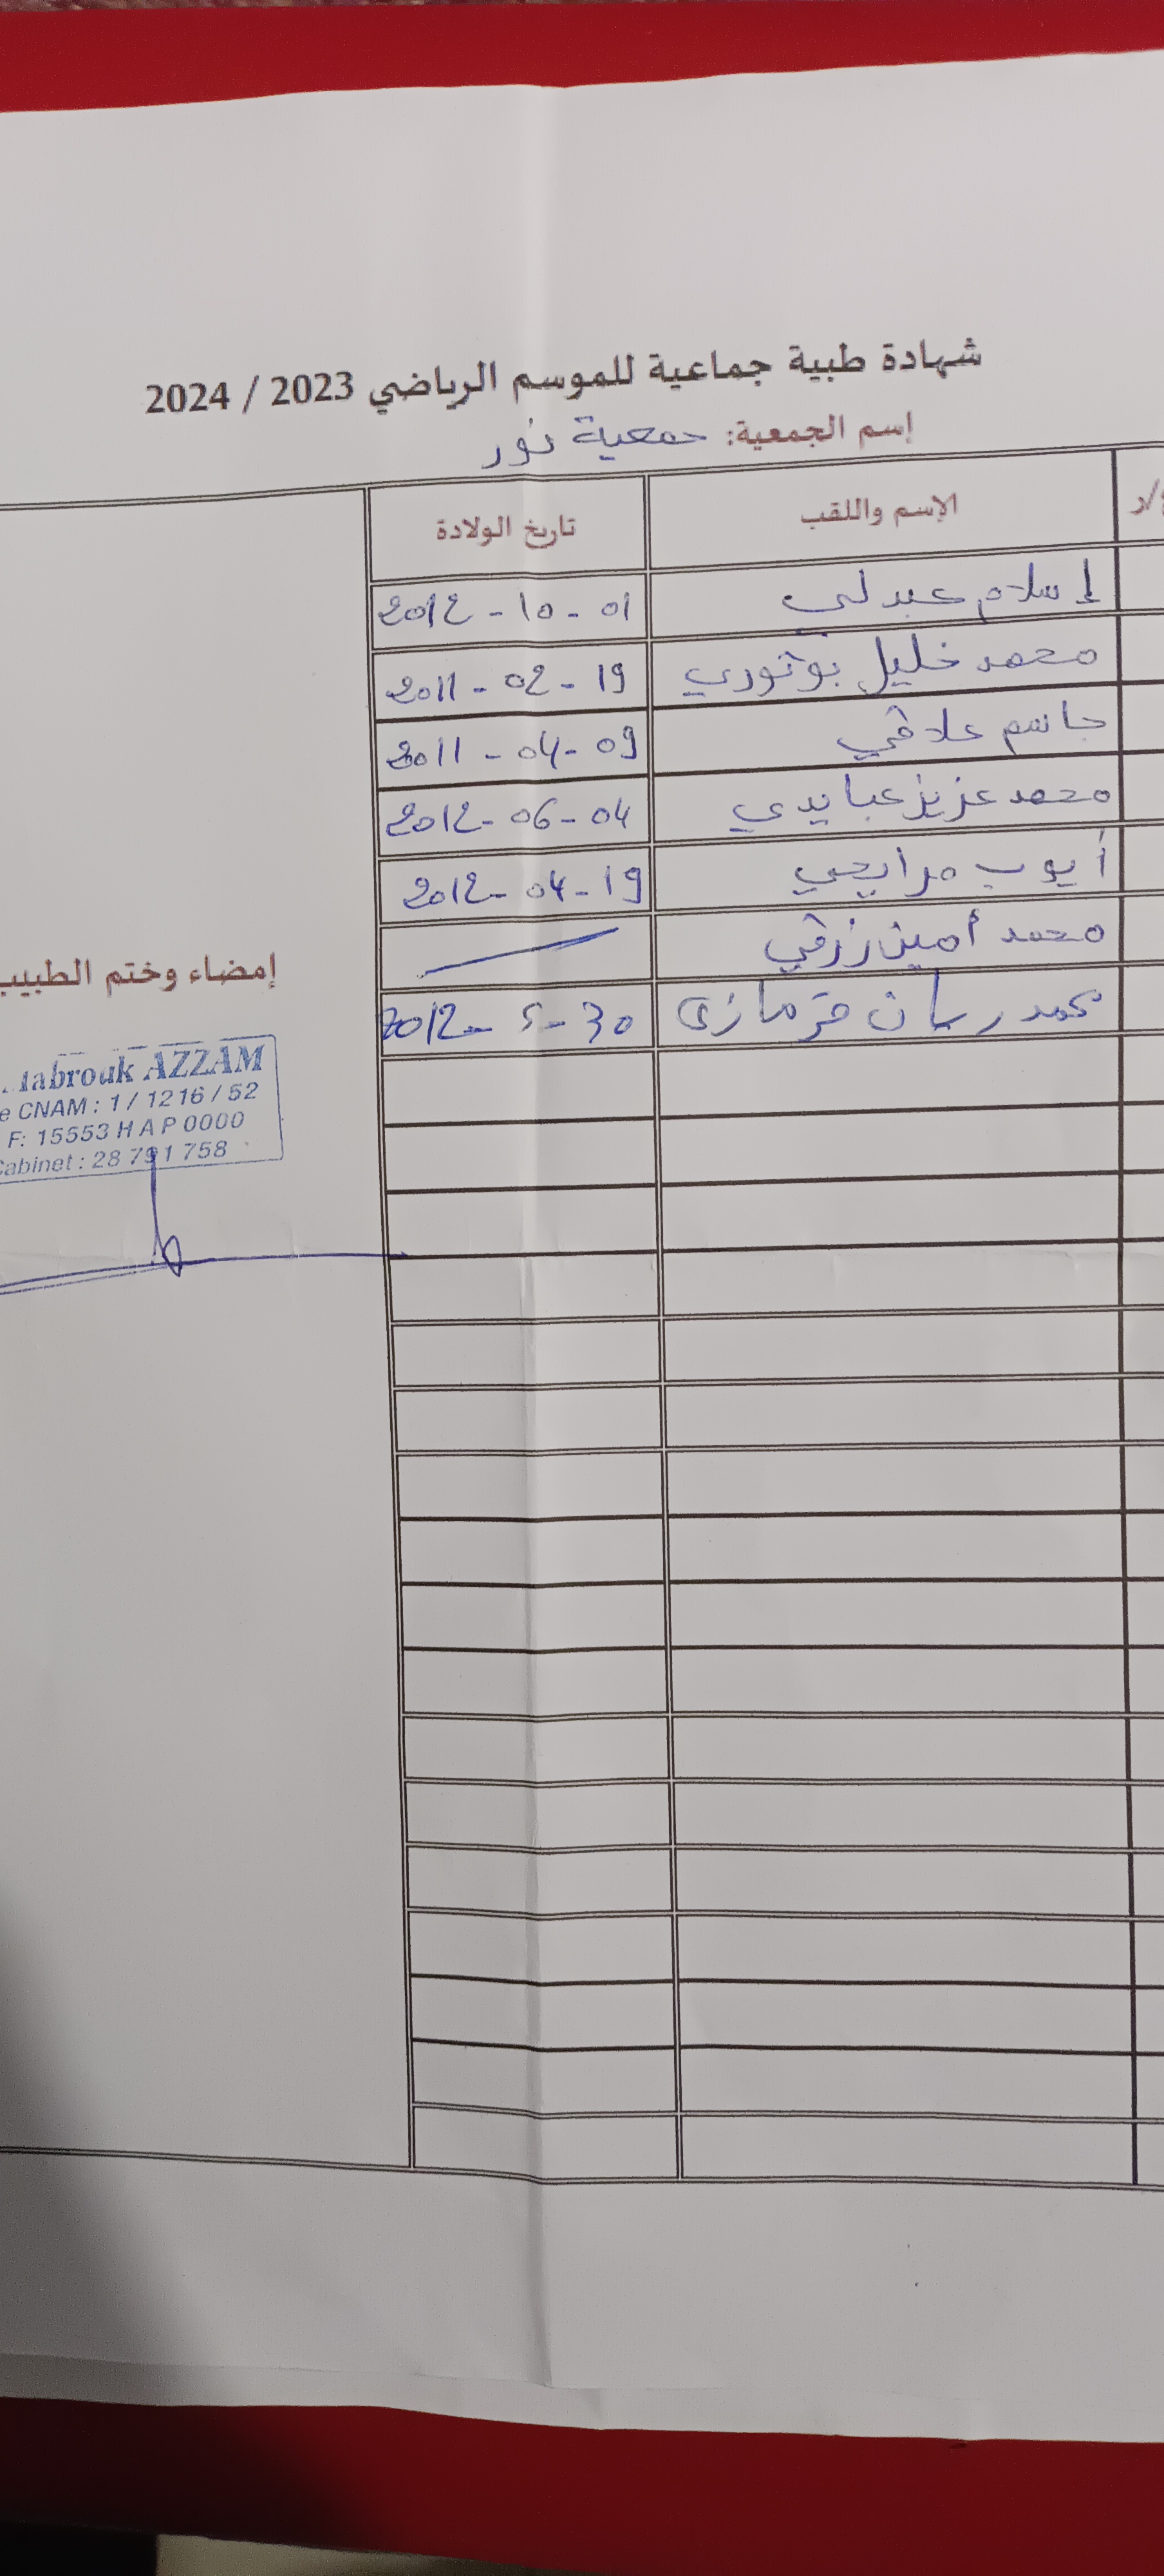 شهادة طبية جماعية للموسم الرياضي 2023 / 2024
إسم الجمعية: جمعية نور
ع/ر الإسم واللقب تاريخ الولادة
إسلام عبدلي 2012 - 10 - 01
محمد خليل بوثوري 2011 - 02 - 19
جاسم علاقي 2011 - 04 - 09
محمد عزيز عبايدي 2012 - 06 - 04
أيوب مرايحي 2012 - 04 - 19
محمد أمين زرقي
محمد ريان قرمازي 2012 - 5 - 30
إمضاء وختم الطبيب
Mabrouk AZZAM
e CNAM : 1 / 1216 / 52
F: 15553 H A P 0000
Cabinet : 28 791 758